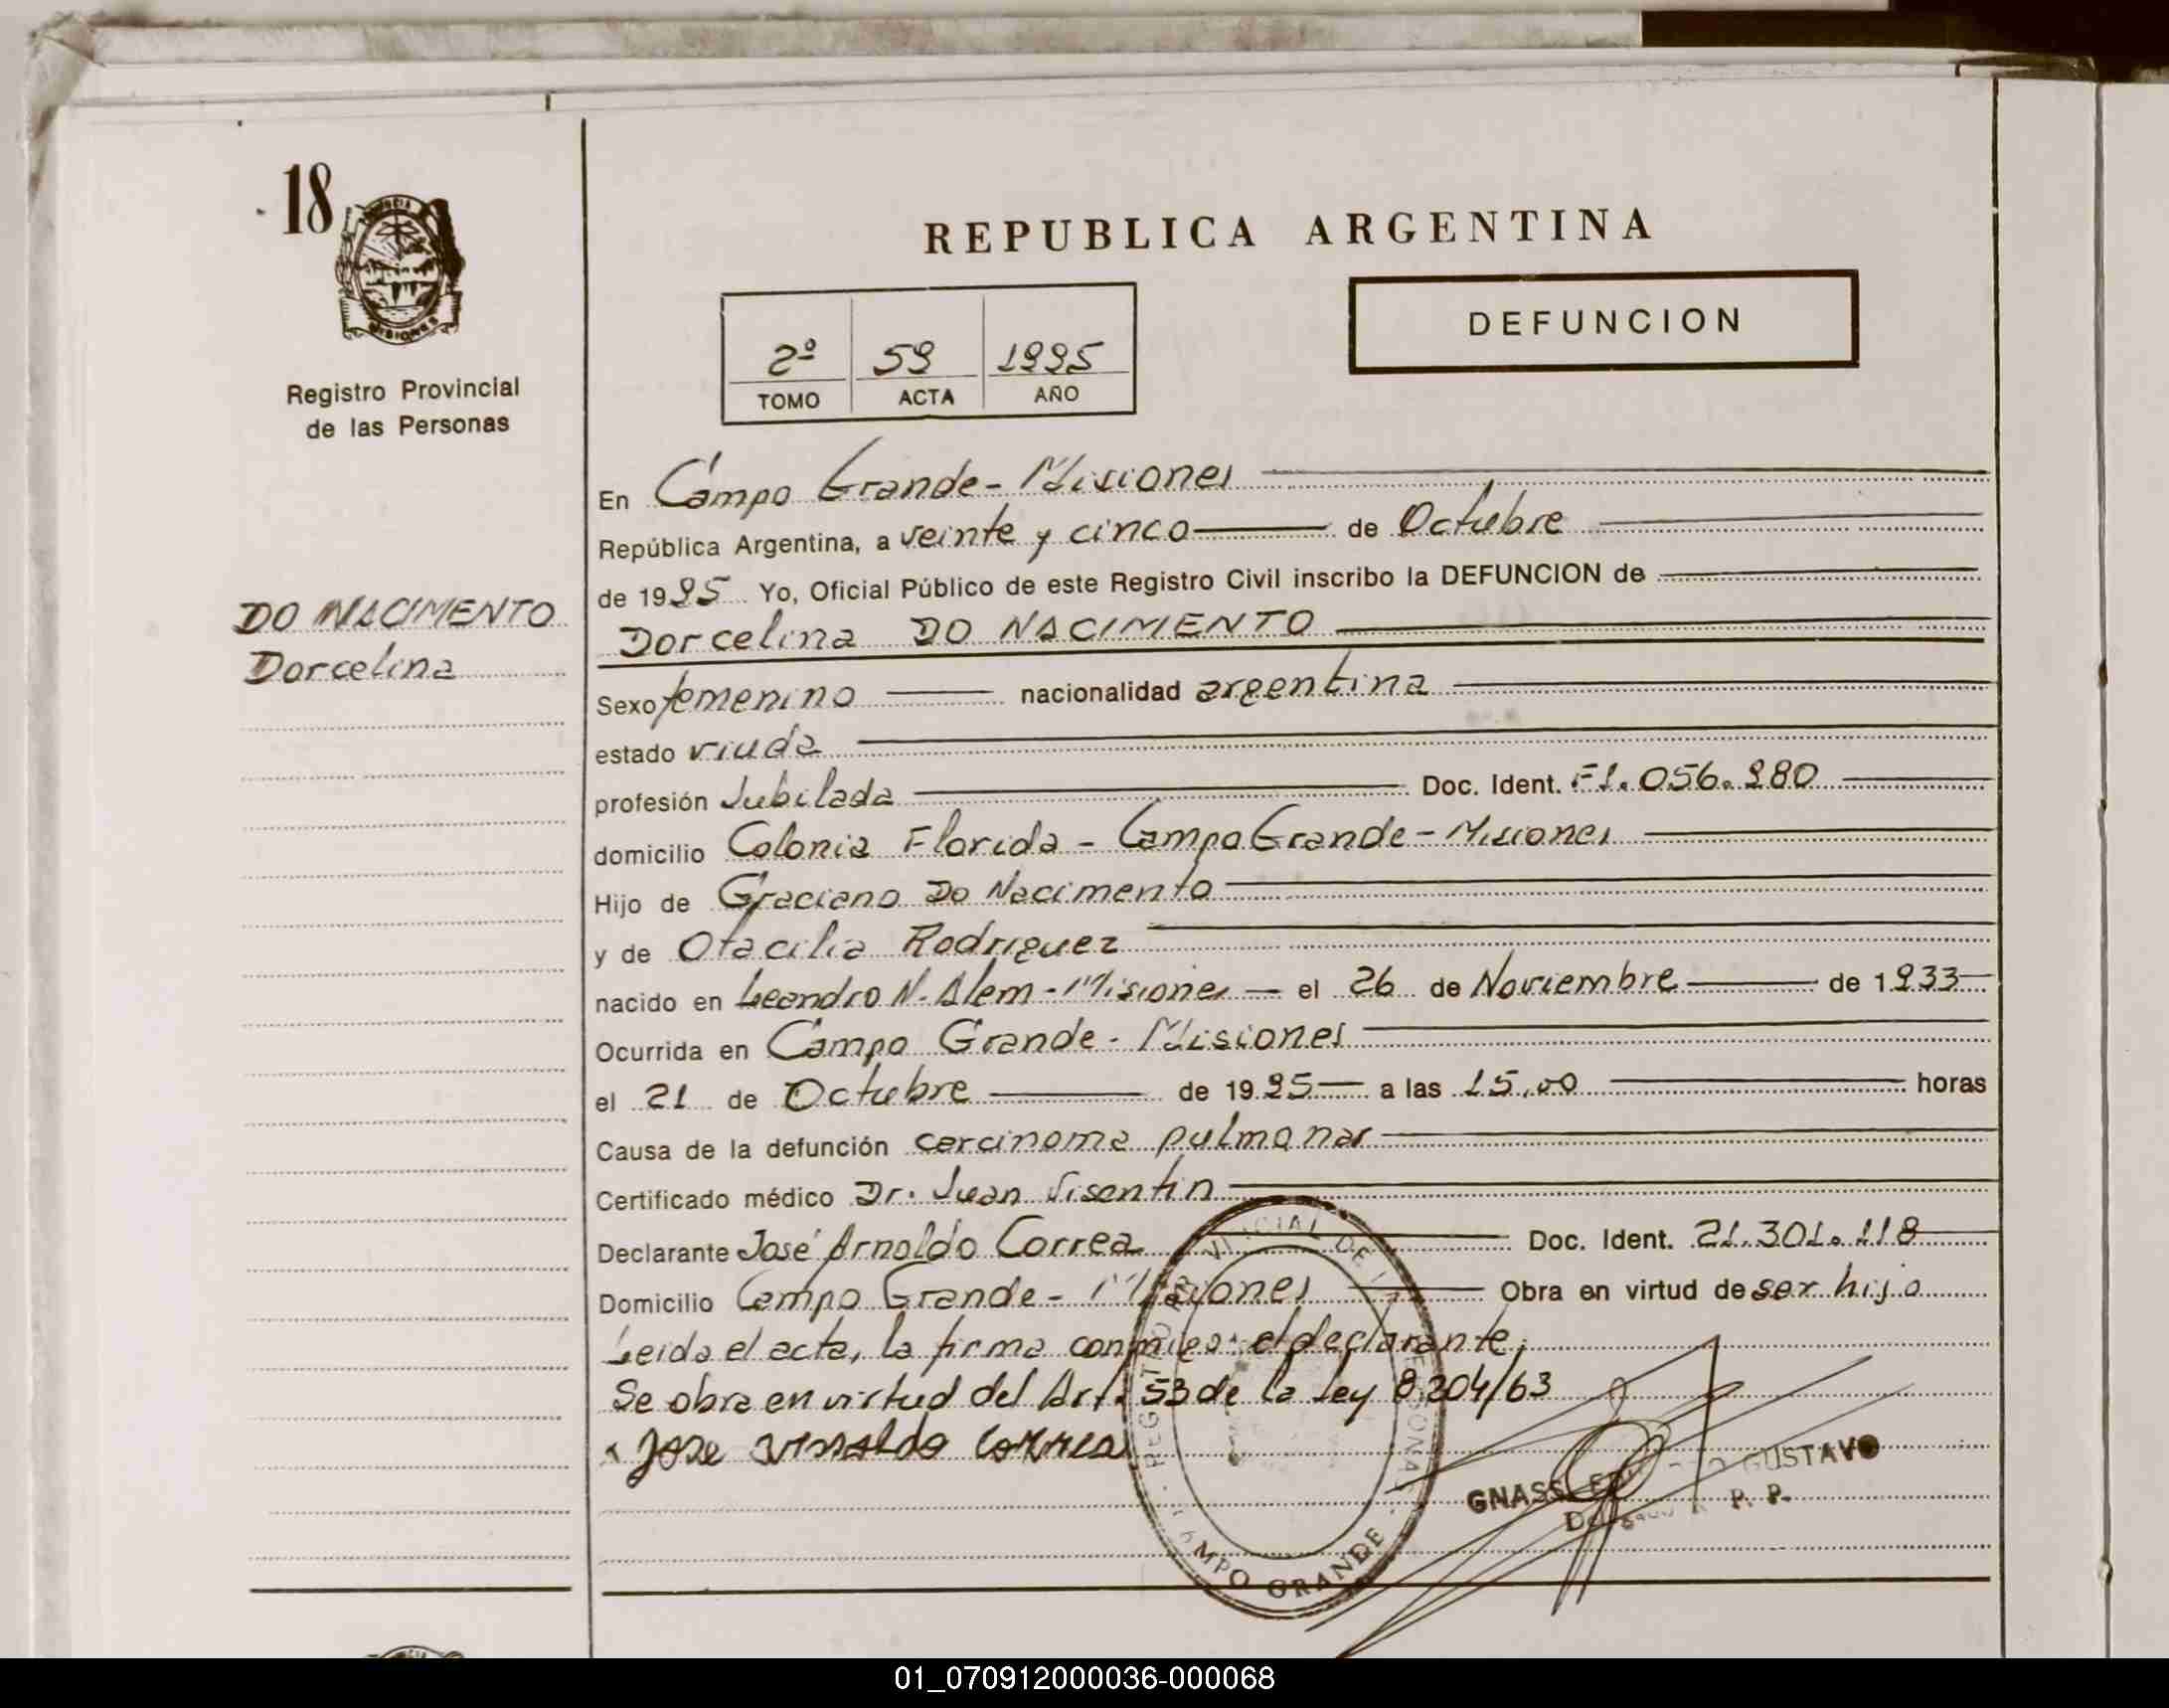 18
MISIONES
Registro Provincial
de las Personas
REPUBLICA ARGENTINA
2º 59 1995
TOMO ACTA AÑO
DEFUNCION
DO NACIMENTO
Dorcelina
En Campo Grande - Misiones
República Argentina, a veinte y cinco de Octubre
de 1995 Yo, Oficial Público de este Registro Civil inscribo la DEFUNCION de
Dorcelina DO NACIMENTO
Sexo femenino nacionalidad argentina
estado viuda
profesión Jubilada Doc. Ident. F1.056.980
domicilio Colonia Florida - Campo Grande - Misiones
Hijo de Graciano Do Nacimento
y de Otacilia Rodriguez
nacido en Leandro N. Alem - Misiones el 26 de Noviembre de 1933
Ocurrida en Campo Grande - Misiones
el 21 de Octubre de 1995 a las 15,00 horas
Causa de la defunción carcinoma pulmonar
Certificado médico Dr. Juan Visentin
Declarante José Arnoldo Correa Doc. Ident. 21.301.118
Domicilio Campo Grande - Misiones Obra en virtud de ser hijo
Leida el acta, la firma conmigo el declarante.
Se obra en virtud del Art. 53 de la Ley 8.204/63
Jose Arnaldo Correa
GNASS GUSTAVO
R. P. P.
CAMPO GRANDE
01_070912000036-000068